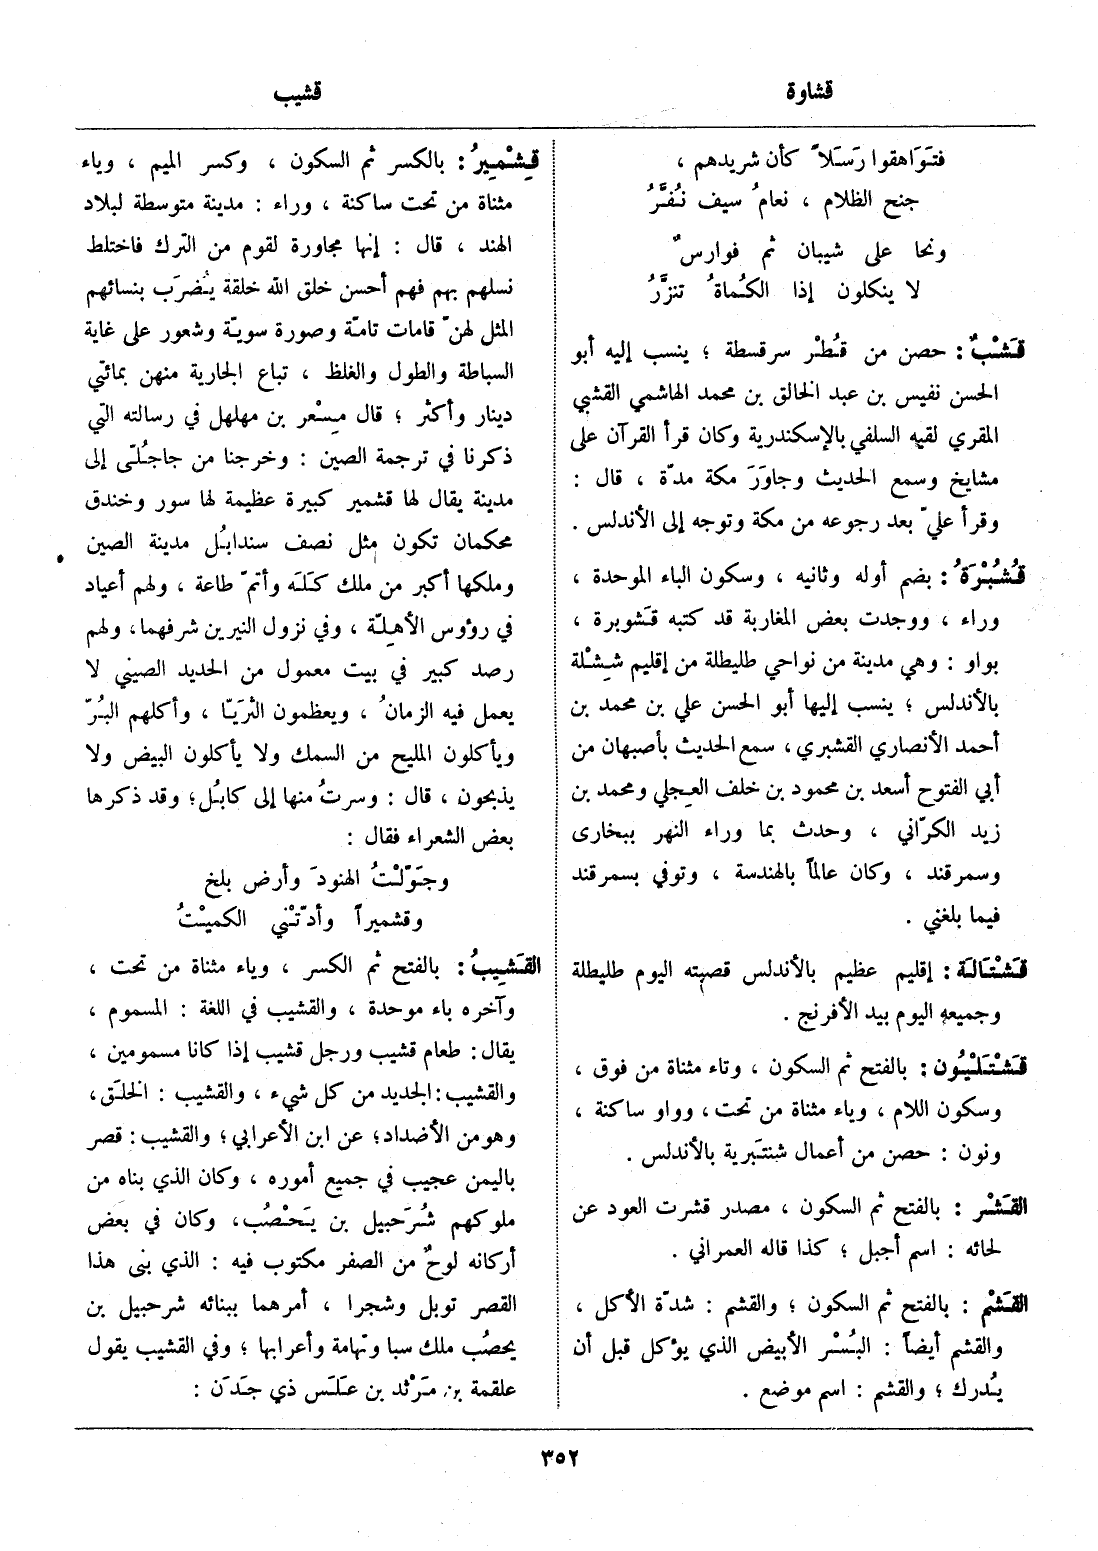 قشاوة
قشيب
فتَوَاهقوا رَسَلاً كأن شريدهم ،
جنح الظلام ، نعامُ سيف نُفَّرُ
ونحا على شيبان ثم فوارسٌ
لا ينكلون إذا الكُماةُ تنزَّرُ
قَشْبٌ : حصن من قُطْر سرقسطة ؛ ينسب إليه أبو
الحسن نفيس بن عبد الخالق بن محمد الهاشمي القشبي
المقري لقيه السلفي بالإسكندرية وكان قرأ القرآن على
مشايخ وسمع الحديث وجاوَرَ مكة مدّة ، قال :
وقرأ عليّ بعد رجوعه من مكة وتوجه إلى الأندلس .
قُشُبْرَةُ : بضم أوله وثانيه ، وسكون الباء الموحدة ،
وراء ، ووجدت بعض المغاربة قد كتبه قَشوبرة ،
بواو : وهي مدينة من نواحي طليطلة من إقليم شِشْلة
بالأندلس ؛ ينسب إليها أبو الحسن علي بن محمد بن
أحمد الأنصاري القشبري ، سمع الحديث بأصبهان من
أبي الفتوح أسعد بن محمود بن خلف العِجلي ومحمد بن
زيد الكرّاني ، وحدث بما وراء النهر ببخارى
وسمرقند ، وكان عالماً بالهندسة ، وتوفي بسمرقند
فيما بلغني .
قَشْتَالَة : إقليم عظيم بالأندلس قصبته اليوم طليطلة
وجميعه اليوم بيد الأفرنج .
قَشْتَلْيُون : بالفتح ثم السكون ، وتاء مثناة من فوق ،
وسكون اللام ، وياء مثناة من تحت ، وواو ساكنة ،
ونون : حصن من أعمال شنتَبرية بالأندلس .
القَشْر : بالفتح ثم السكون ، مصدر قشرت العود عن
لحائه : اسم أجبل ؛ كذا قاله العمراني .
القَشْم : بالفتح ثم السكون ؛ والقشم : شدّة الأكل ،
والقشم أيضاً : البُسْر الأبيض الذي يؤكل قبل أن
يُدرك ؛ والقشم : اسم موضع .
قِشْمِيرُ : بالكسر ثم السكون ، وكسر الميم ، وياء
مثناة من تحت ساكنة ، وراء : مدينة متوسطة لبلاد
الهند ، قال : إنها مجاورة لقوم من الترك فاختلط
نسلهم بهم فهم أحسن خلق الله خلقة يُضرَب بنسائهم
المثل لهنّ قامات تامّة وصورة سويّة وشعور على غاية
السباطة والطول والغلظ ، تباع الجارية منهن بمائتي
دينار وأكثر ؛ قال مِسْعر بن مهلهل في رسالته التي
ذكرنا في ترجمة الصين : وخرجنا من جاجُلّى إلى
مدينة يقال لها قشمير كبيرة عظيمة لها سور وخندق
محكمان تكون مثل نصف سندابُل مدينة الصين
وملكها أكبر من ملك كَلَه وأتمّ طاعة ، ولهم أعياد
في رؤوس الأهلّة ، وفي نزول النيرين شرفهما ، ولهم
رصد كبير في بيت معمول من الحديد الصيني لا
يعمل فيه الزمانُ ، ويعظمون الثُرَيّا ، وأكلهم البُرّ
ويأكلون المليح من السمك ولا يأكلون البيض ولا
يذبحون ، قال : وسرتُ منها إلى كابُل ؛ وقد ذكرها
بعض الشعراء فقال :
وجَوّلْتُ الهنودَ وأرض بلخ
وقشميراً وأدّتْني الكميْتُ
القَشِيبُ : بالفتح ثم الكسر ، وياء مثناة من تحت ،
وآخره باء موحدة ، والقشيب في اللغة : المسموم ،
يقال : طعام قشيب ورجل قشيب إذا كانا مسمومين ،
والقشيب : الجديد من كل شيء ، والقشيب : الخلَق ،
وهو من الأضداد ؛ عن ابن الأعرابي ؛ والقشيب : قصر
باليمن عجيب في جميع أموره ، وكان الذي بناه من
ملوكهم شُرَحبيل بن يَحْصُب ، وكان في بعض
أركانه لوحٌ من الصفر مكتوب فيه : الذي بنى هذا
القصر توبل وشجرا ، أمرهما ببنائه شرحبيل بن
يحصُب ملك سبا وتهامة وأعرابها ؛ وفي القشيب يقول
علقمة بن مَرْثد بن عَلَس ذي جَدَن :
٣٥٢